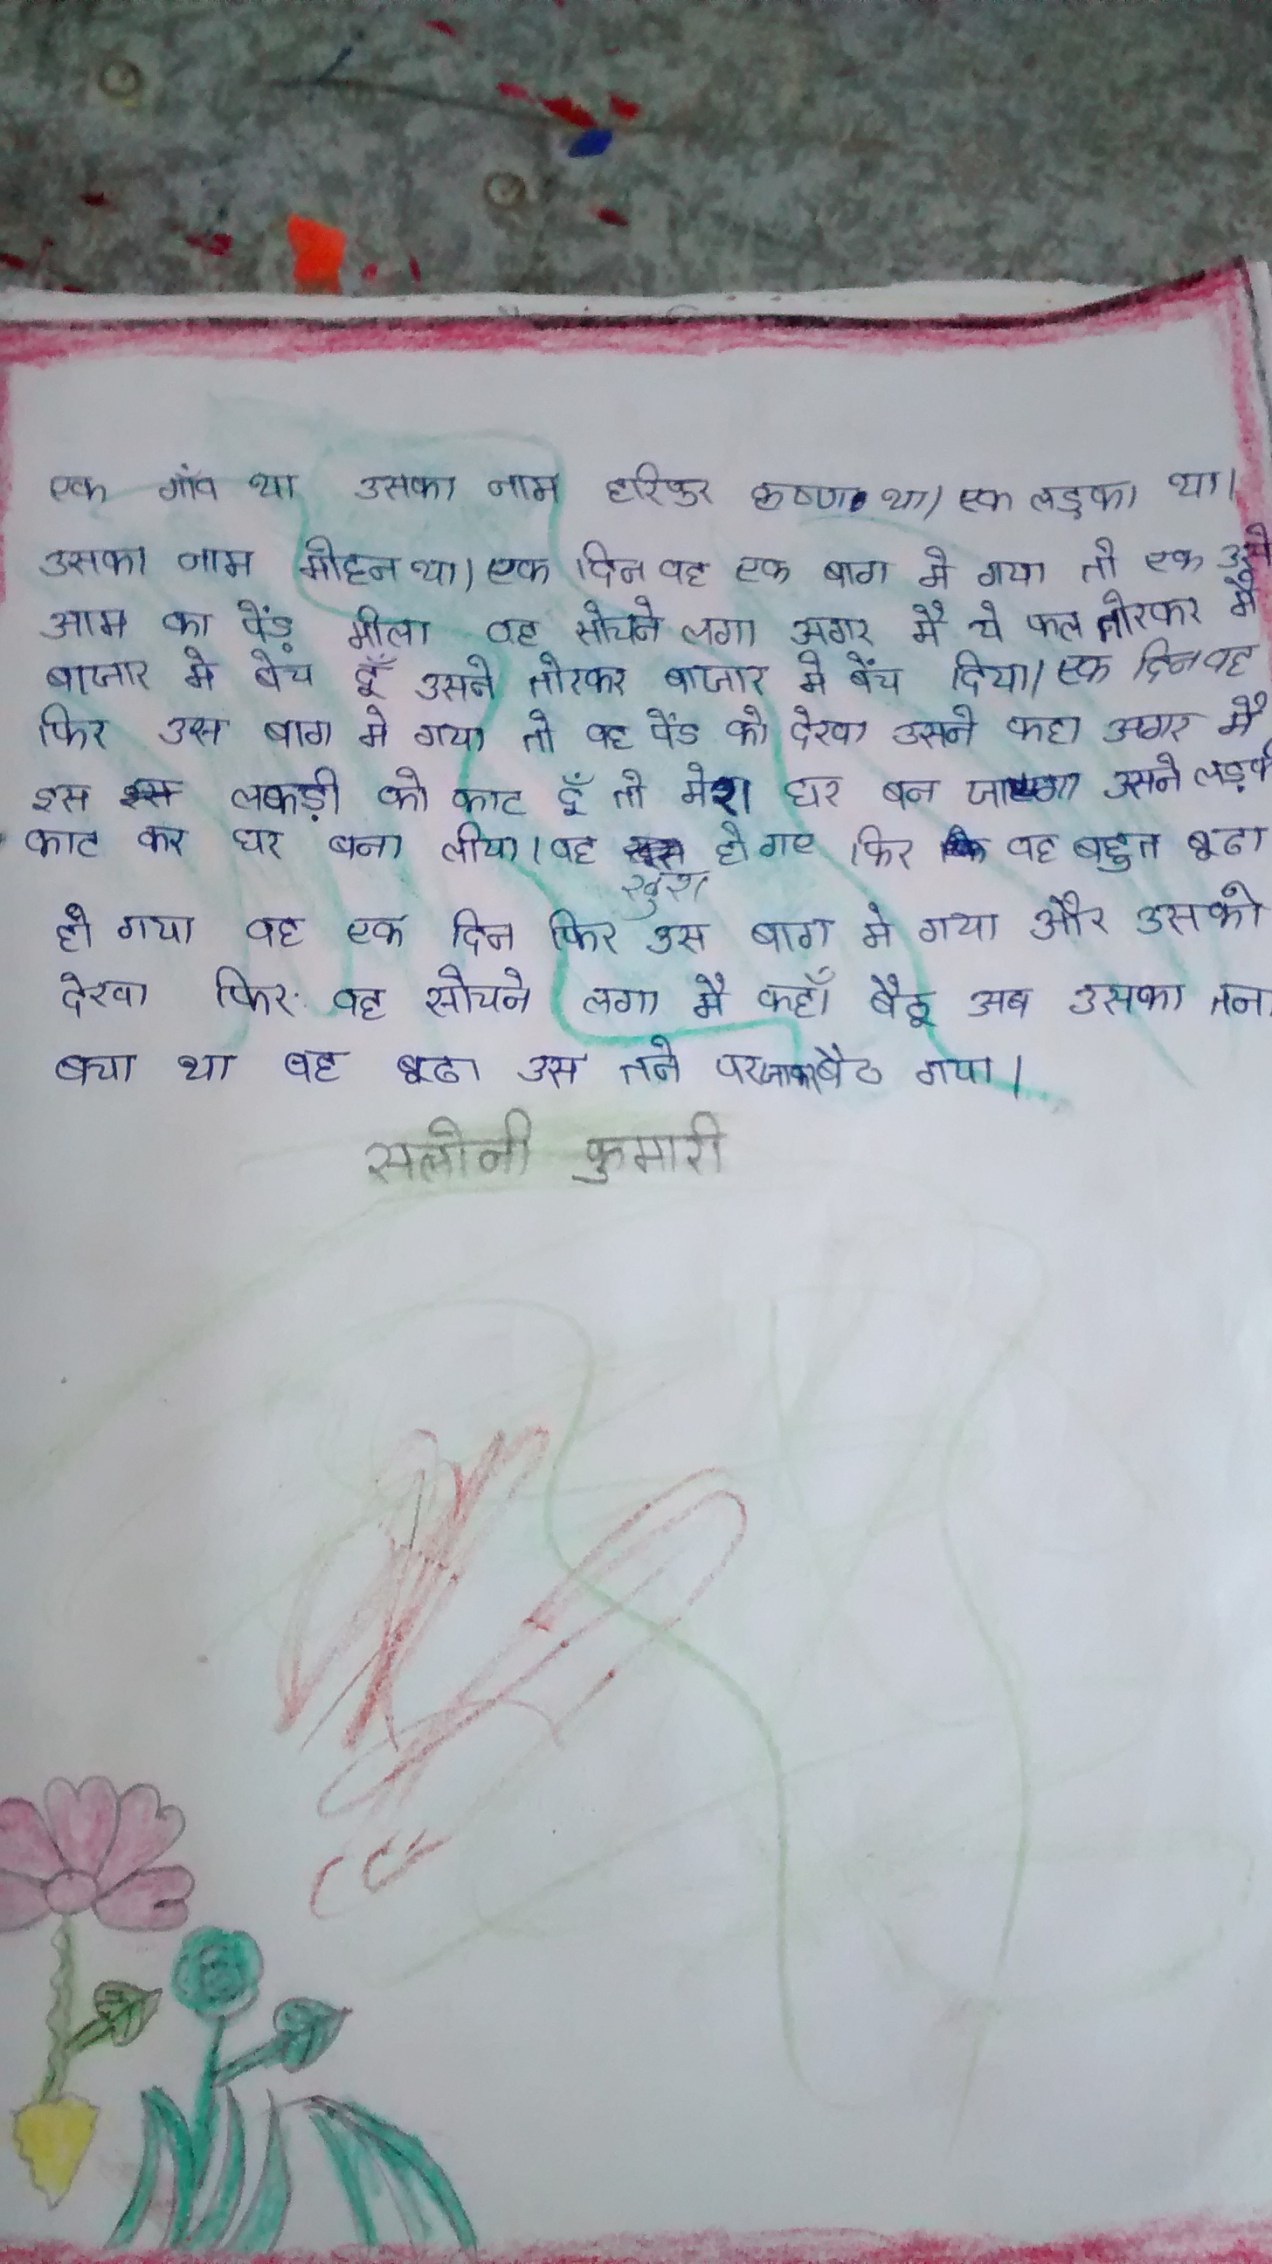 एक गाँव था उसका नाम हरिपुर कृष्ण था। एक लड़का था।
उसका नाम मोहन था। एक दिन वह एक बाग में गया तो एक उसे
आम का पेंड़ मीला वह सोचने लगा अगर मैं ये फल तोरकर मैं
बाजार मे बेच दूँ उसने तोरकर बाजार मे बेंच दिया। एक दिन वह
फिर उस बाग मे गया तो वह पेंड को देखा उसने कहा अगर मैं
इस लकड़ी को काट दूँ तो मेरा घर बन जाएगा उसने
काट कर घर बना लीया। वह खुश हो गए फिर वह बहुत बूढा
हो गया वह एक दिन फिर उस बाग मे गया और उसको
देखा फिर वह सोचने लगा मै कहाँ बैठू अब उसका तना
बचा था वह बूढा उस तने पर जाकर बैठ गया।
सलोनी कुमारी